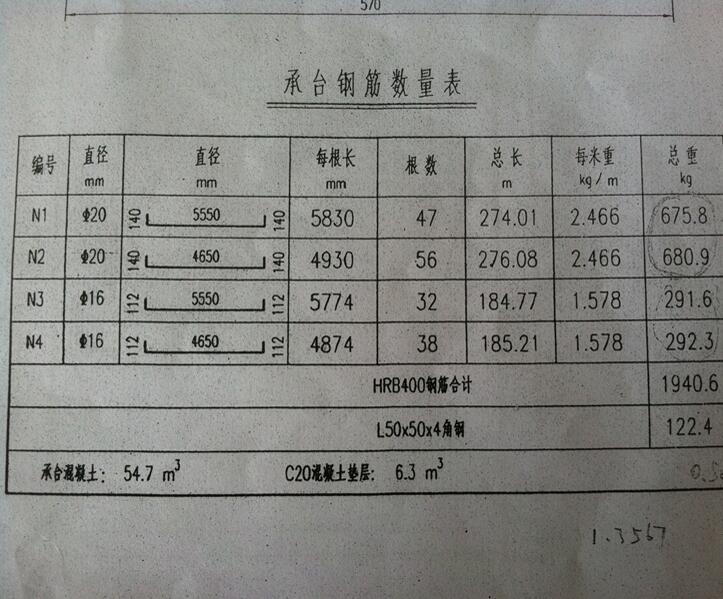 570
承台钢筋数量表
编号 直径 mm 直径 mm 每根长 mm 根数 总长 m 每米重 kg/m 总重 kg
N1 Φ20 140 5550 140 5830 47 274.01 2.466 675.8
N2 Φ20 140 4650 140 4930 56 276.08 2.466 680.9
N3 Φ16 112 5550 112 5774 32 184.77 1.578 291.6
N4 Φ16 112 4650 112 4874 38 185.21 1.578 292.3
HRB400钢筋合计 1940.6
L50x50x4角钢 122.4
承台混凝土: 54.7 m³ C20混凝土垫层: 6.3 m³
1.3567